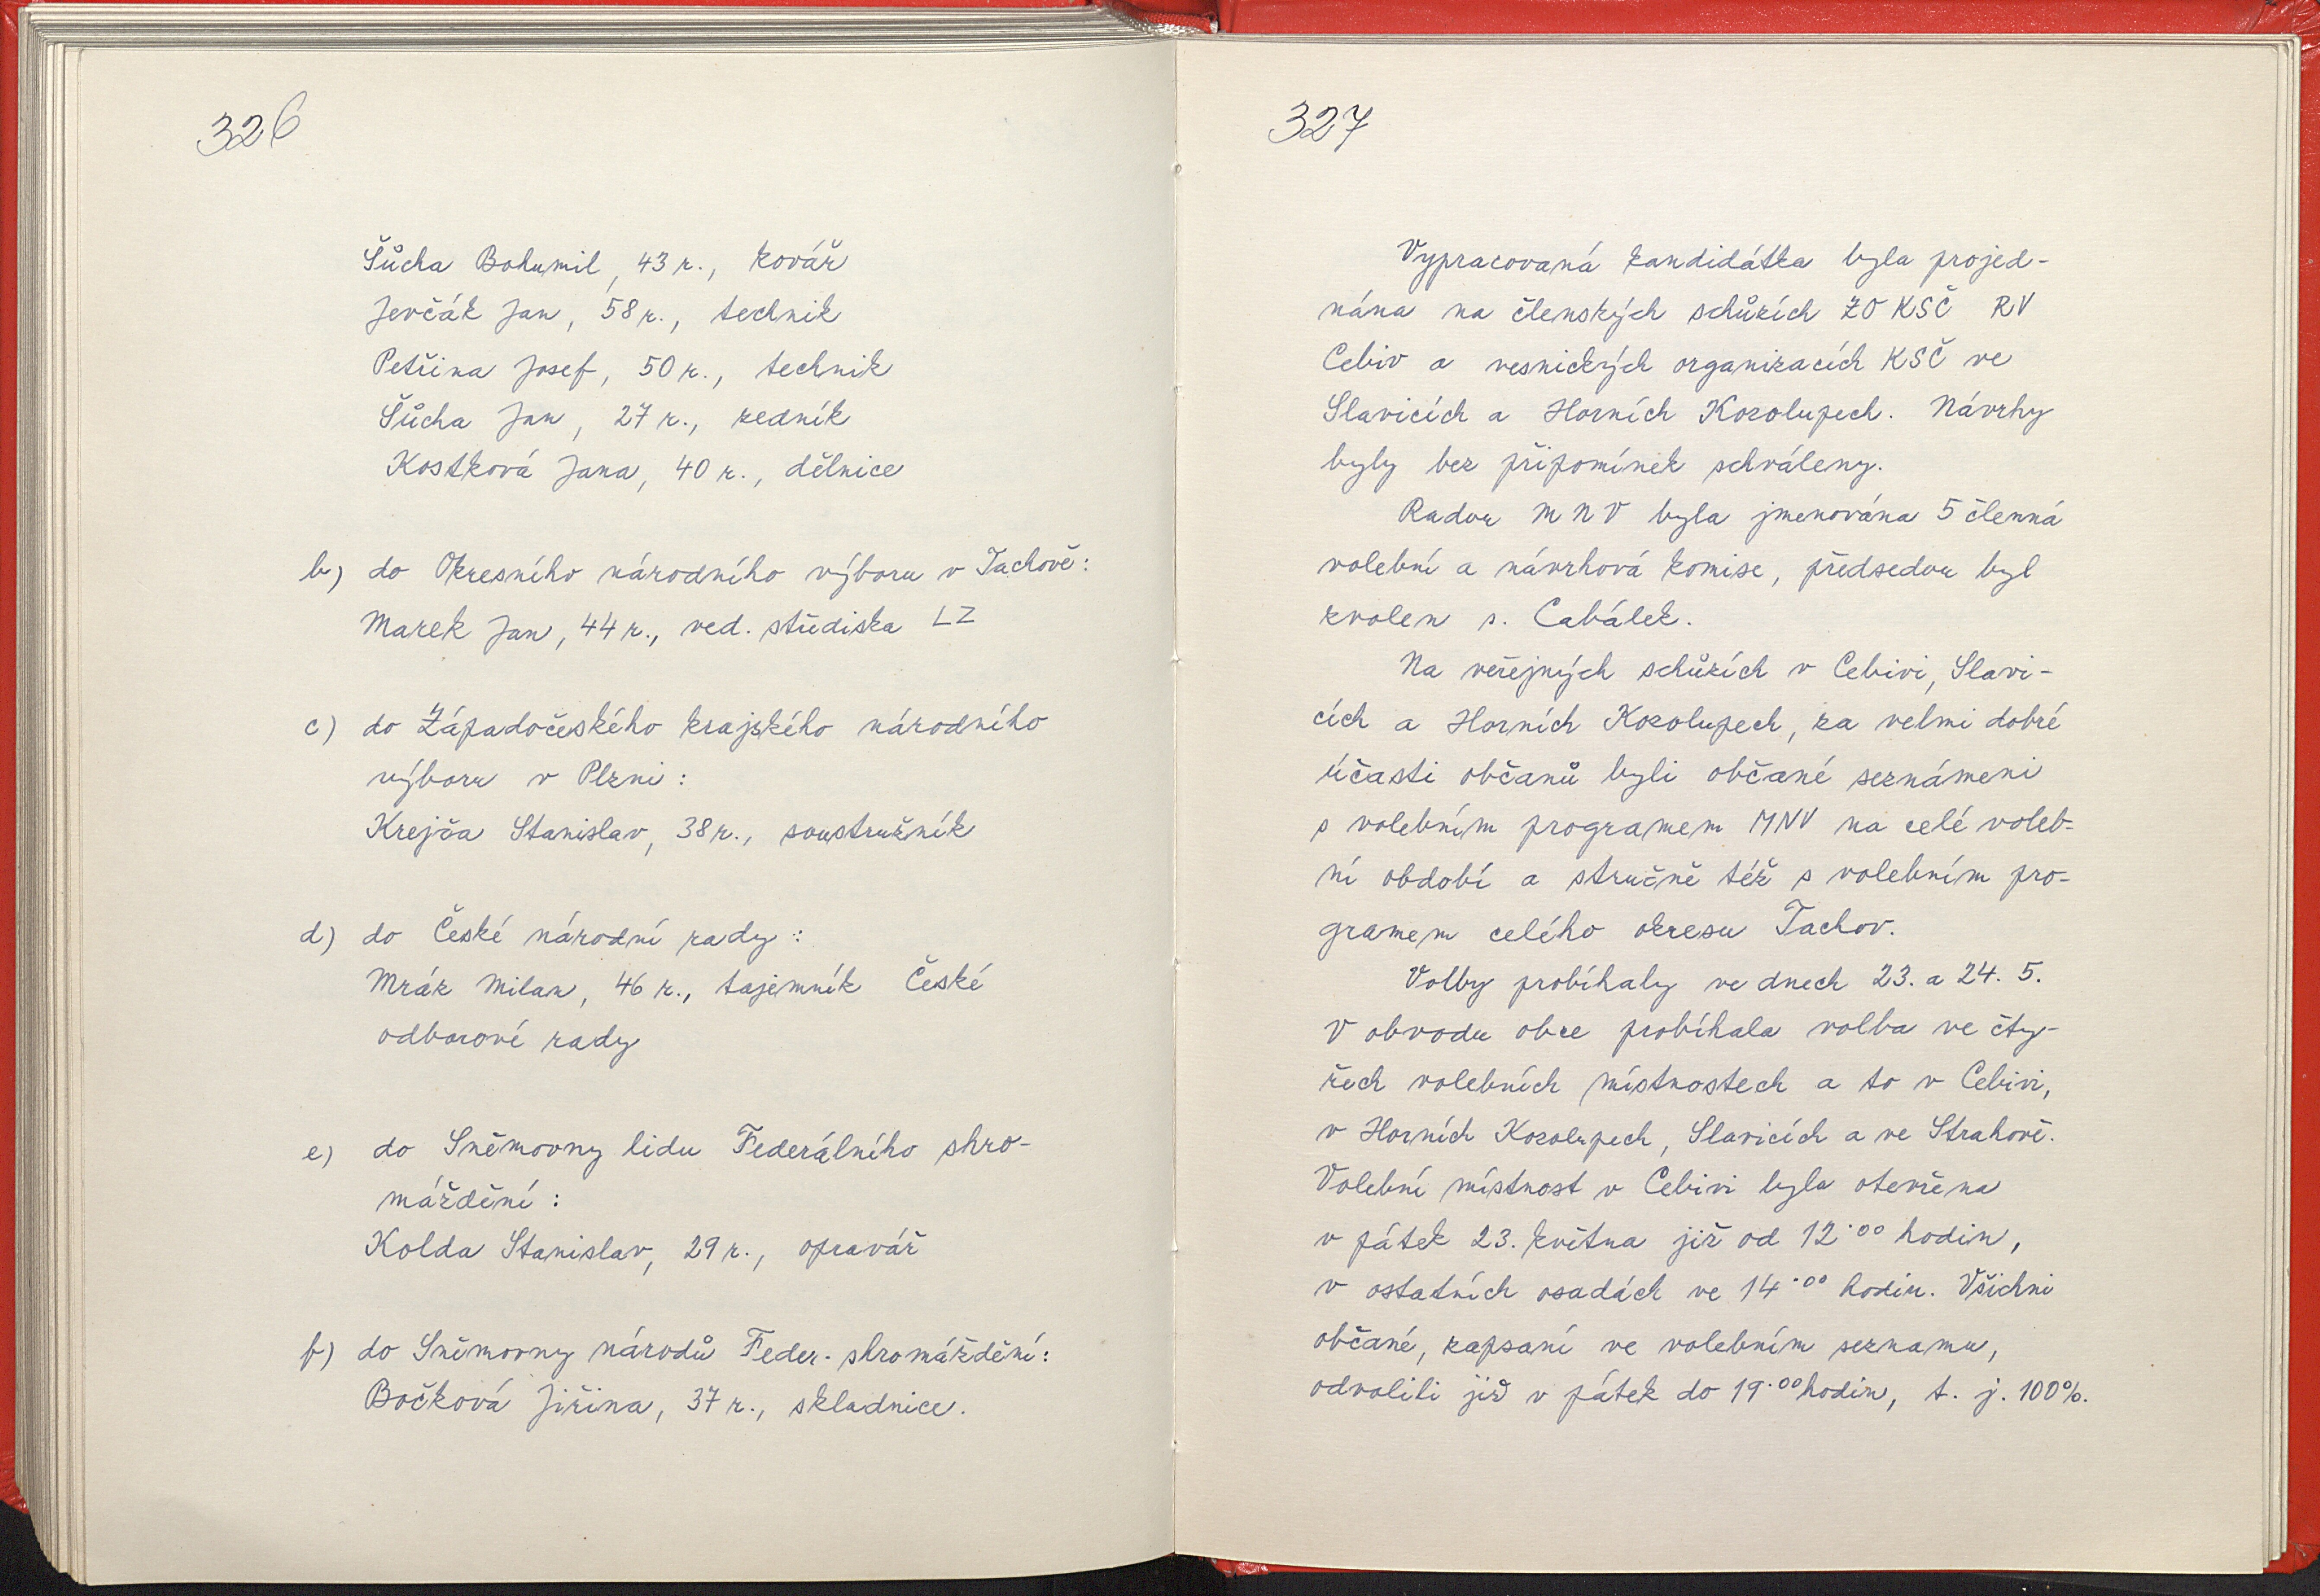 326
Šůcha Bohumil, 43 r., kovář
Jevčák Jan, 58 r., technik
Petřina Josef, 50 r., technik
Šůcha Jan, 27 r., zedník
Kostková Jana, 40 r., dělnice
b) do Okresního národního výboru v Tachově:
Marek Jan, 44 r., ved. střediska LZ
c) do Západočeského krajského národního
výboru v Plzni:
Krejča Stanislav, 38 r., soustružník
d) do České národní rady:
Mráz Milan, 46 r., tajemník České
odborové rady
e) do Sněmovny lidu Federálního shro-
máždění:
Kolda Stanislav, 29 r., opravář
f) do Sněmovny národů Feder. shromáždění:
Bočková Jiřina, 37 r., skladnice.
327
Vypracovaná kandidátka byla projed-
nána na členských schůzích ZO KSČ RV
Cebiv a vesnických organizacích KSČ ve
Slavicích a Horních Kozolupech. Návrhy
byly bez připomínek schváleny.
Radou MNV byla jmenována 5 členná
volební a návrhová komise, předsedou byl
zvolen s. Cabálek.
Na veřejných schůzích v Cebivi, Slavi-
cích a Horních Kozolupech, za velmi dobré
účasti občanů byli občané seznámeni
s volebním programem MNV na celé voleb-
ní období a stručně též s volebním pro-
gramem celého okresu Tachov.
Volby probíhaly ve dnech 23. a 24. 5.
V obvodu obce probíhala volba ve čty-
řech volebních místnostech a to v Cebivi,
v Horních Kozolupech, Slavicích a ve Strahově.
Volební místnost v Cebivi byla otevřena
v pátek 23. května již od 12.00 hodin,
v ostatních osadách ve 14.00 hodin. Všichni
občané, zapsaní ve volebním seznamu,
odvolili již v pátek do 19.00 hodin, t. j. 100%.